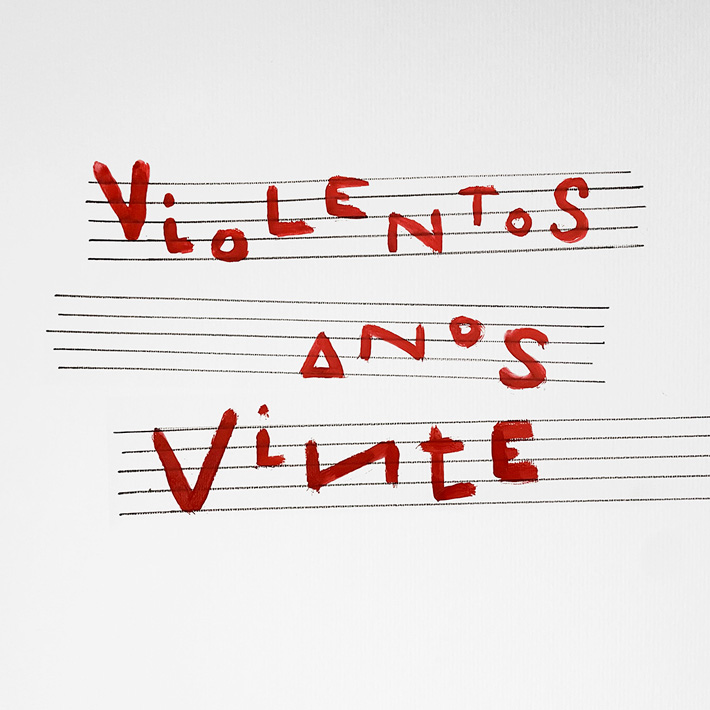 ViOLENTOS
ANOS
ViNtE